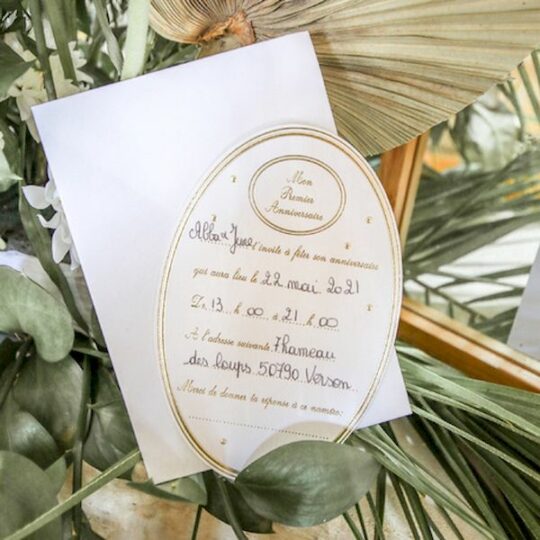 Mon
Premier
Anniversaire
t'invite à fêter son anniversaire
qui aura lieu le 22 mai 2021
De 13 h 00 à 21 h 00
À l'adresse suivante 7 hameau
des loups 50790 Verson
Merci de donner ta réponse à ce numéro: